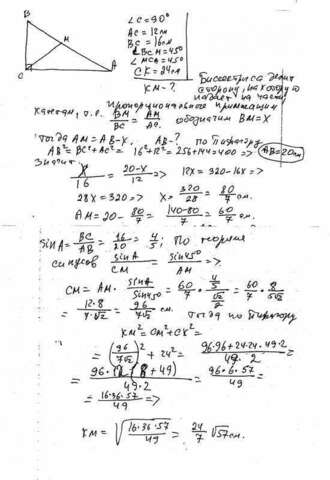 B
M
C
A
∠C=90°
AC=12см
BC=16см
∠BCM=45°
∠MCA=45°
CK=24см
KM-?
Биссектриса делит
сторону, на которую
падает на части
пропорциональные прилежащим
катетам, т.е. BM/AM = обозначим BM=X
Тогда AM=AB-X. AB-? по Пифагору
AB²=BC²+AC²=16²+12²=256+144=400 => AB=20см
Значит
X/16 = (20-X)/12 => 12X=320-16X =>
28X=320 => X= 320/28 = 80/7 см.
AM=20- 80/7 = (140-80)/7 = 60/7 см.
sinA= BC/AB = 16/20 = 4/5; По теореме
синусов sinA/CM = sin45°/AM =>
CM=AM· sinA/sin45° = 60/7 · (4/5)/(√2/2) = 60/7 · 8/(5√2)
= 12·8/(7·√2) = 96/(7√2) см. тогда по Пифагору
KM²=CM²+CK²=
= (96/(7√2))² + 24² = (96·96+24·24·49·2)/(49·2) =
= 96·6·57/49 =
= 16·36·57/49 =>
KM = √(16·36·57/49) = 24/7 √57 см.